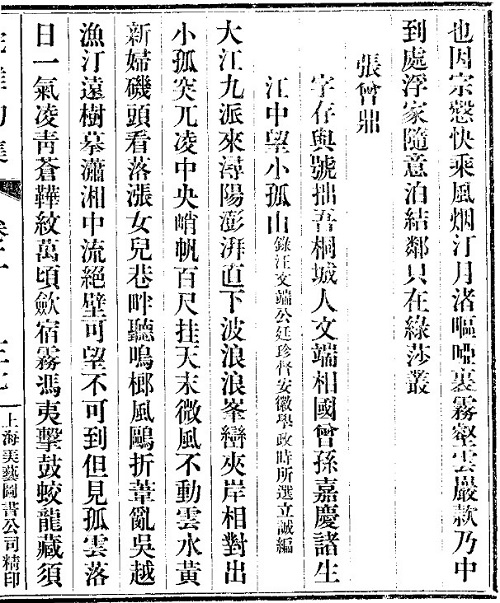 也因宗慤快乘風烟汀月渚嘔啞裏霧壑雲巖款乃中
到處浮家隨意泊結鄰只在綠莎叢
張曾鼎
字存與號拙吾桐城人文端相國曾孫嘉慶諸生
江中望小孤山錄汪文端公廷珍督安徽學政時所選立誠編
大江九派來潯陽澎湃直下波浪浪峯巒夾岸相對出
小孤突兀凌中央峭帆百尺挂天末微風不動雲水黃
新婦磯頭看落漲女兒巷畔聽鳴榔風鷗折葦亂吳越
漁汀遠樹摹瀟湘中流絕壁可望不可到但見孤雲落
日一氣凌青蒼鞾紋萬頃歛宿霧馮夷擊鼓蛟龍藏須
上海美藝圖書公司精印